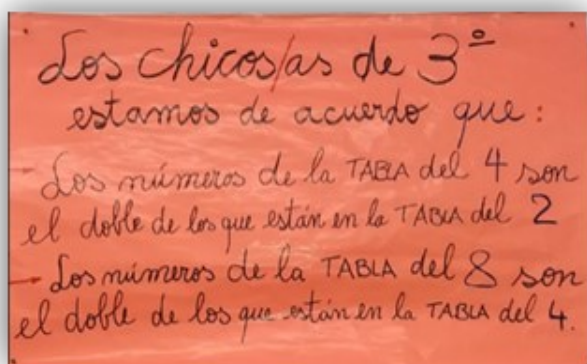 Los chicos/as de 3º
estamos de acuerdo que:
- Los números de la TABLA del 4 son
el doble de los que están en la TABLA del 2
- Los números de la TABLA del 8 son
el doble de los que están en la TABLA del 4.